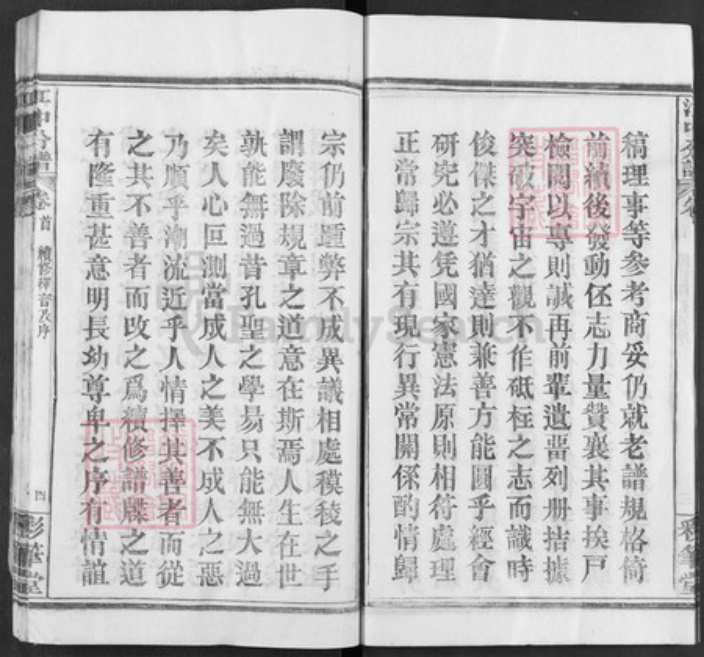 稿理事等參考商妥仍就老譜規格倚
前續後發動伾志力量贊襄其事挨戸
檢閱以專則誠再前輩遺畱列册拮據
突破宇宙之觀不作砥柱之志而識時
俊傑之才猶達則兼善方能圓乎經會
研究必遵凭國家憲法原則相符處理
正常歸宗共有現行異常關係酌情歸
宗仍前踵弊不成異議相處稷稜之手
謂廢除規章之道意在斯焉人生在世
孰能無過昔孔聖之學易只能無大過
矣人心叵測當成人之美不成人之惡
乃順乎潮流近乎人情擇其善者而從
之其不善者而改之爲續修譜牒之道
有隆重甚意明長幼尊卑之序有情誼
江口分譜 卷首 續修禪言及序 四 彩華堂
FamilySearch